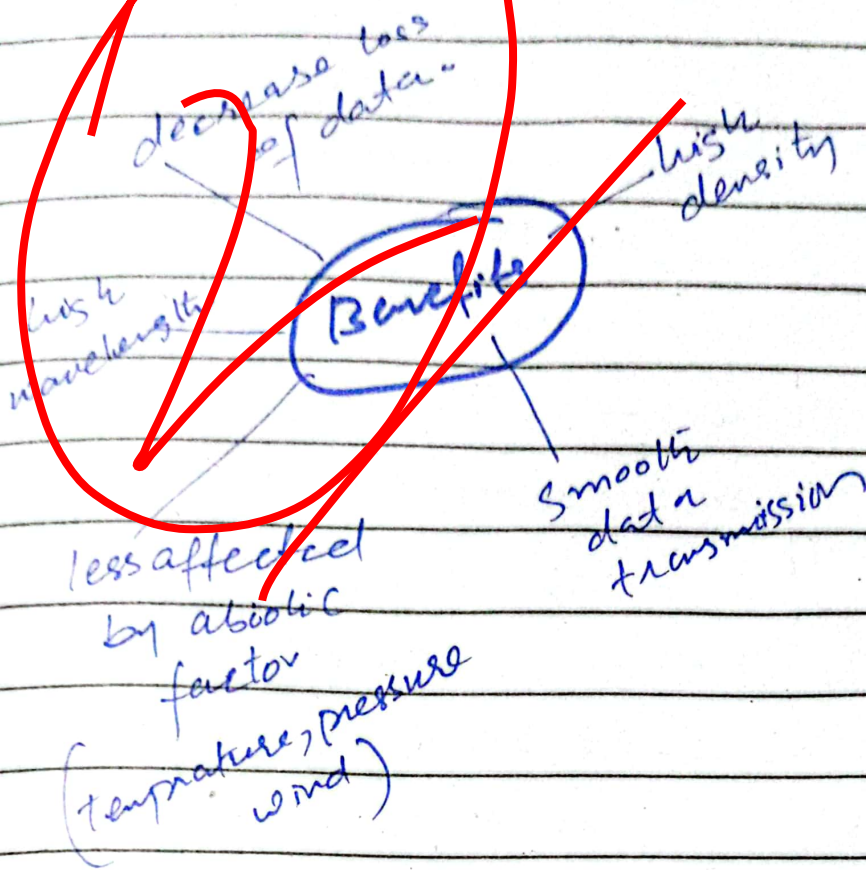 decrease loss
of data.
high
density
Benefits
high
wavelength
Smooth
data
transmission
less affected
by abiotic
factor
(temprature, pressure
wind)